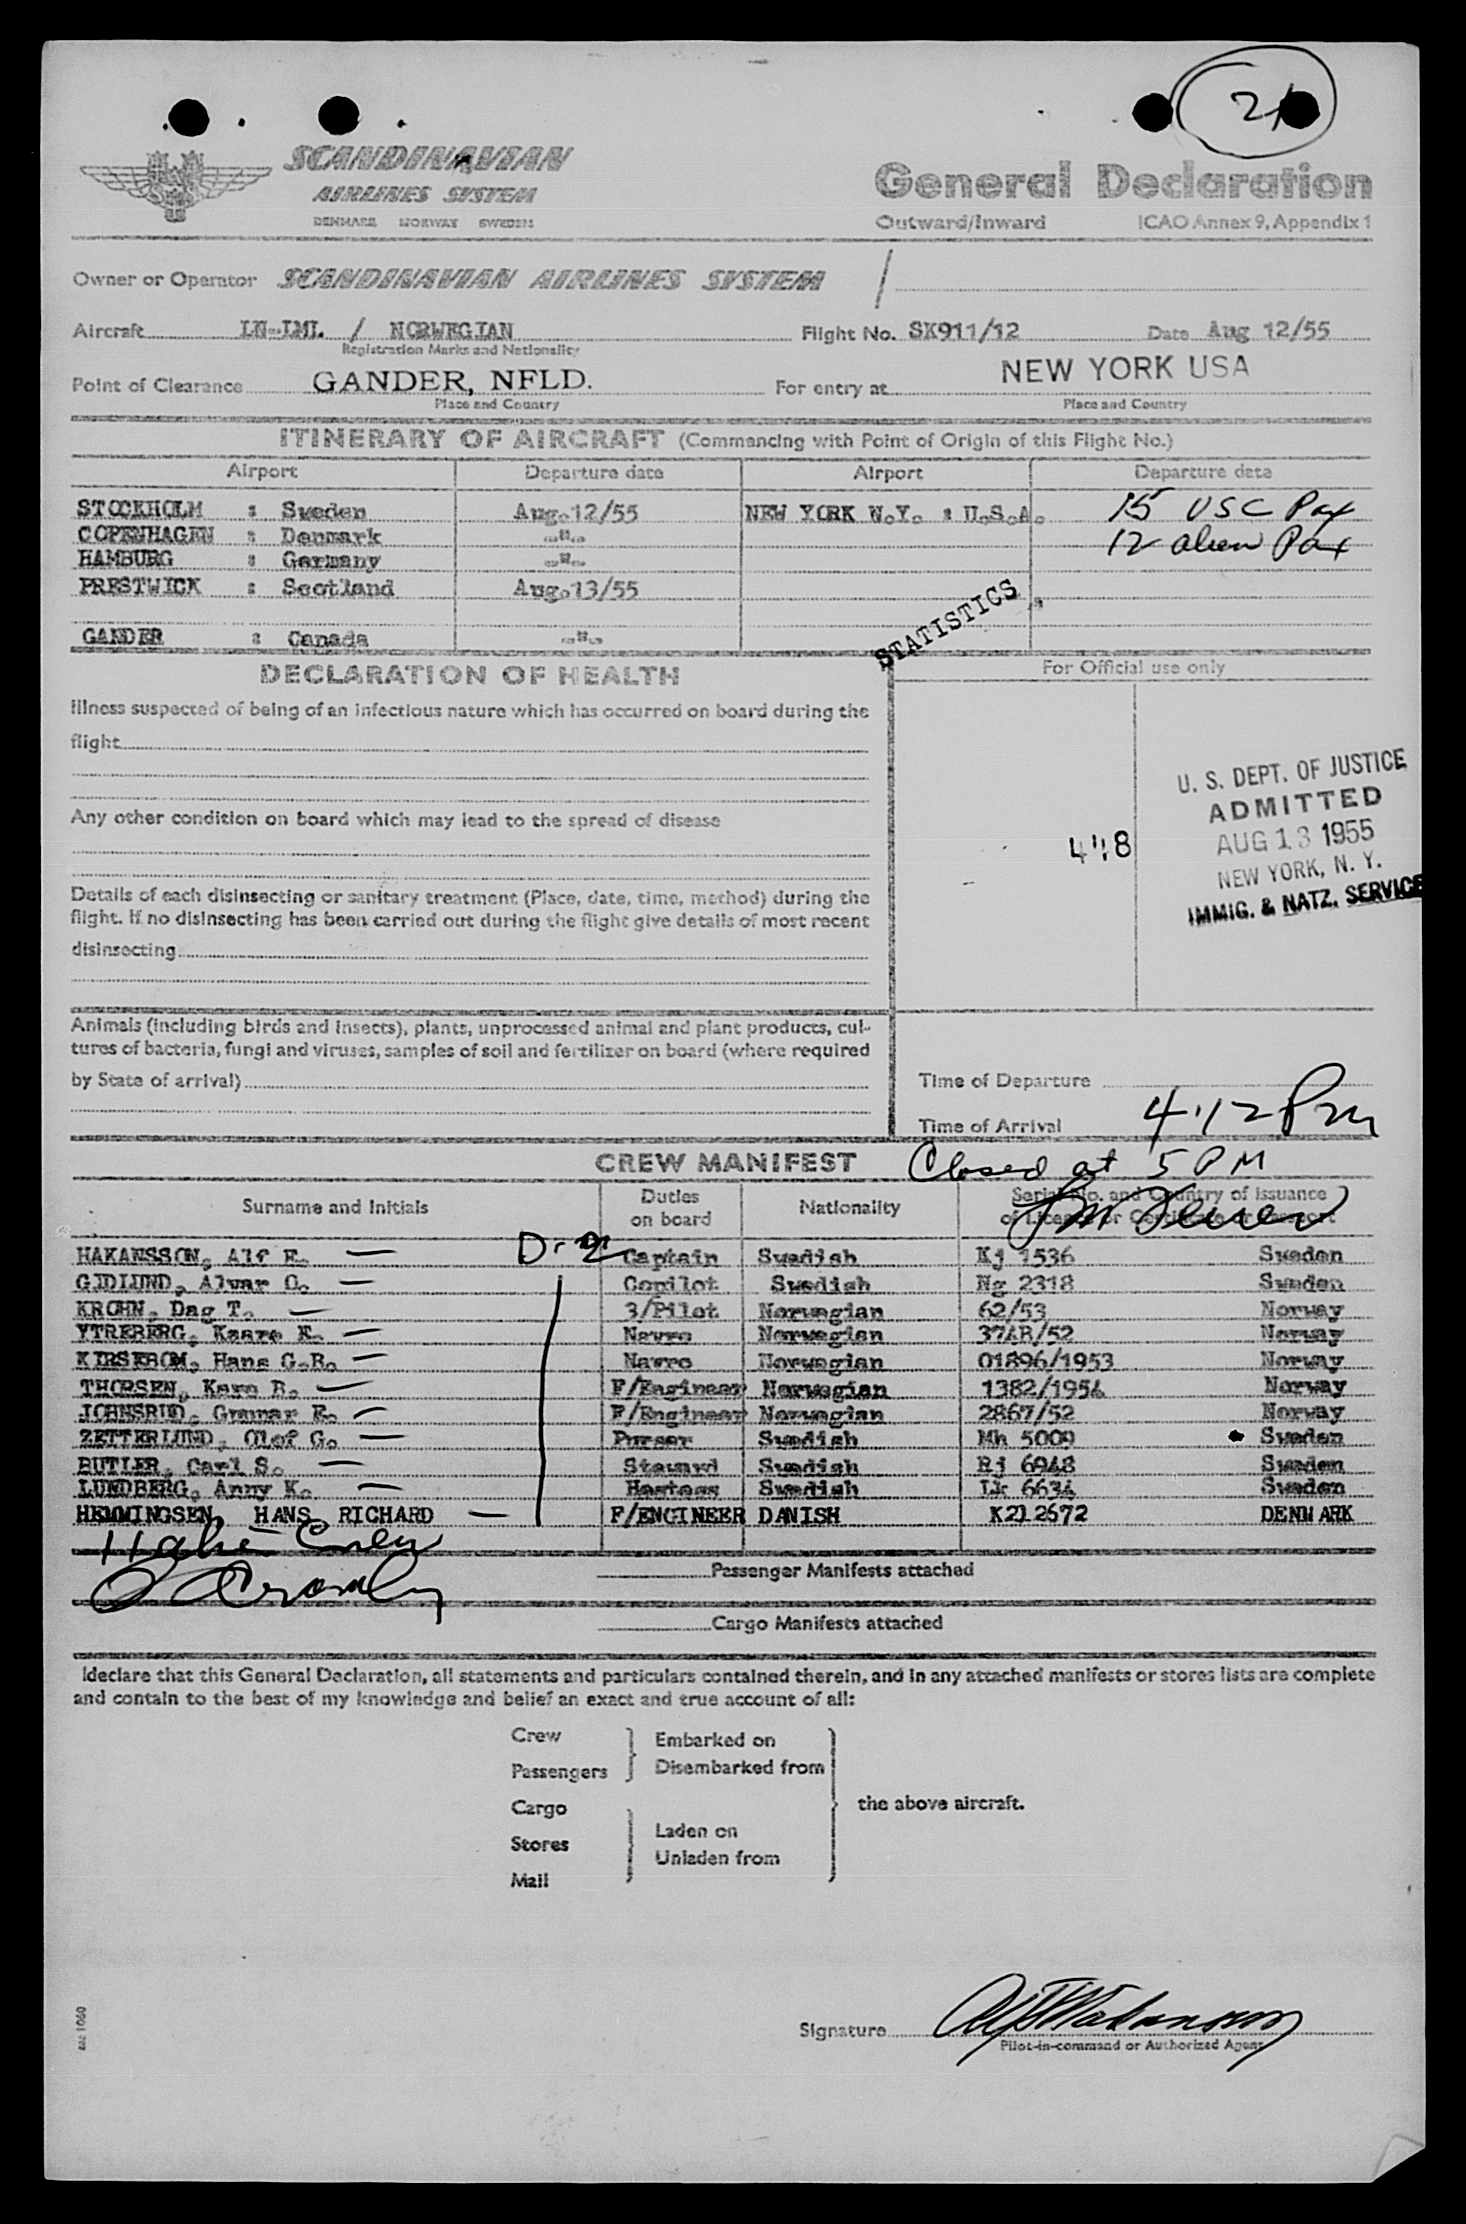 21
SCANDINAVIAN
AIRLINES SYSTEM
DENMARK NORWAY SWEDEN
General Declaration
Outward/Inward ICAO Annex 9, Appendix 1
Owner or Operator SCANDINAVIAN AIRLINES SYSTEM /
Aircraft LN-LML / NORWEGIAN Flight No. SK911/12 Date Aug 12/55
Registration Marks and Nationality
Point of Clearance GANDER, NFLD. For entry at NEW YORK USA
Place and Country Place and Country
ITINERARY OF AIRCRAFT (Commencing with Point of Origin of this Flight No.)
Airport Departure date Airport Departure date
STOCKHOLM : Sweden Aug.12/55 NEW YORK N.Y. : U.S.A. 15 USC Pax
COPENHAGEN : Denmark -"- 12 alien Pax
HAMBURG : Germany -"-
PRESTWICK : Scotland Aug.13/55
STATISTICS
GANDER : Canada -"-
DECLARATION OF HEALTH
For Official use only
Illness suspected of being of an infectious nature which has occurred on board during the
flight
Any other condition on board which may lead to the spread of disease
U. S. DEPT. OF JUSTICE
ADMITTED
AUG 13 1955
NEW YORK, N. Y.
IMMIG. & NATZ. SERVICE
Details of each disinsecting or sanitary treatment (Place, date, time, method) during the
flight. If no disinsecting has been carried out during the flight give details of most recent
disinsecting
Animals (including birds and insects), plants, unprocessed animal and plant products, cul-
tures of bacteria, fungi and viruses, samples of soil and fertilizer on board (where required
by State of arrival)
Time of Departure
Time of Arrival 4:12 Pm
CREW MANIFEST Closed at 5 PM
Surname and Initials Duties on board Nationality Serial No. and Country of Issuance
of License or Certificate or Passport
HAKANSSON, Alf E. — D-2 Captain Swedish Kj 1536 Sweden
GJDLUND, Alvar O. — Copilot Swedish Ng 2318 Sweden
KROHN, Dag T. — 3/Pilot Norwegian 62/53 Norway
YTREBERG, Kaare E. — Navro Norwegian 374B/52 Norway
KIRSEBOM, Hans G.B. — Navro Norwegian 01896/1953 Norway
THORSEN, Kare B. — F/Engineer Norwegian 1382/1954 Norway
JOHNSRUD, Gunnar E. — F/Engineer Norwegian 2867/52 Norway
ZETTERLUND, Olof G. — Purser Swedish Mh 5009 Sweden
BUTLER, Carl S. — Steward Swedish Rj 6948 Sweden
LUNDBERG, Anny K. — Hostess Swedish Lk 6634 Sweden
HEMMINGSEN, HANS RICHARD — F/ENGINEER DANISH K212672 DENMARK
Passenger Manifests attached
Cargo Manifests attached
I declare that this General Declaration, all statements and particulars contained therein, and in any attached manifests or stores lists are complete
and contain to the best of my knowledge and belief an exact and true account of all:
Crew
Passengers
Embarked on
Disembarked from
Cargo
Stores
Mail
Laden on
Unladen from
the above aircraft.
Signature
Pilot-in-command or Authorized Agent